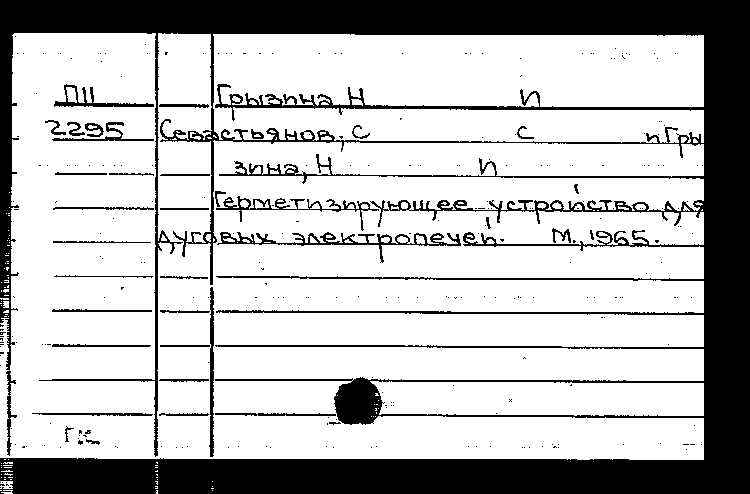 П11 Грызина, Н И
2295 Севастьянов, С С и Гры
зина, Н И
Герметизирующее устройство для
дуговых электропечей. М., 1965.
ГК